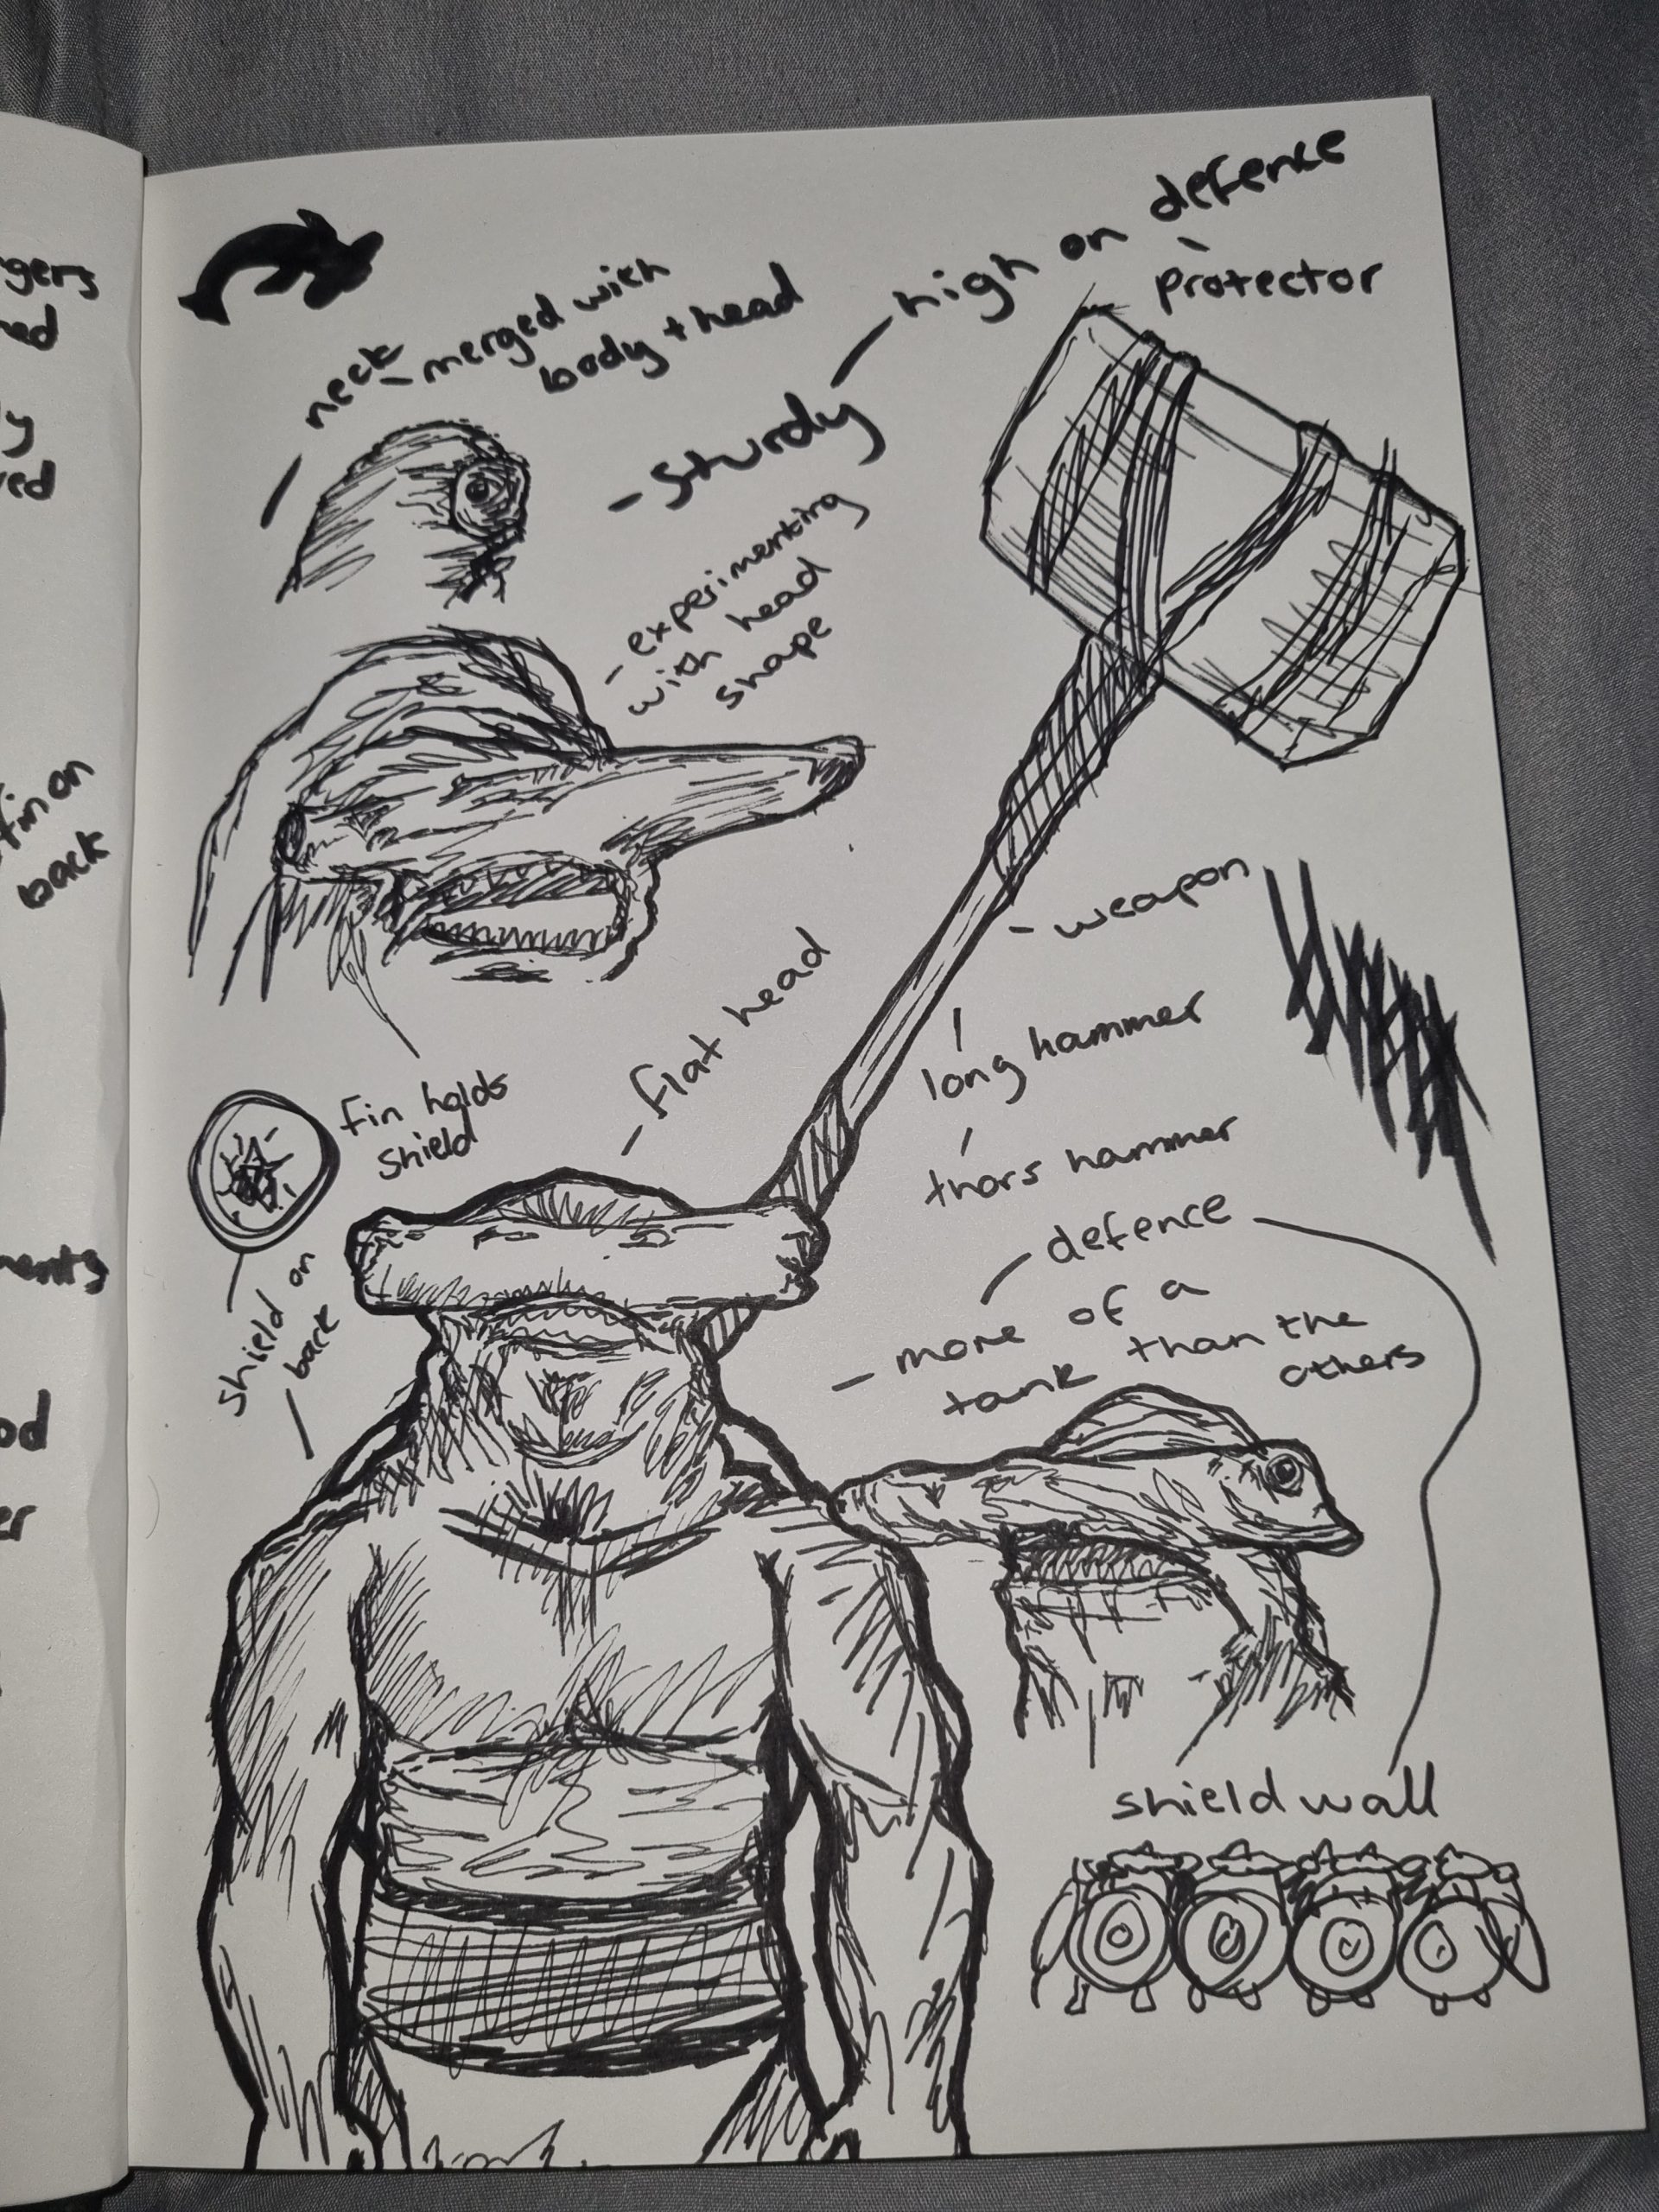 gers
ed
y
red
fin on
back
ments
od
er
neck
- merged with
body + head
- sturdy
high on defence
- protector
- experimenting
with head
shape
- flat head
fin holds
shield
shield on
back
- weapon
long hammer
thors hammer
defence
- more of a
tank than the
others
shield wall